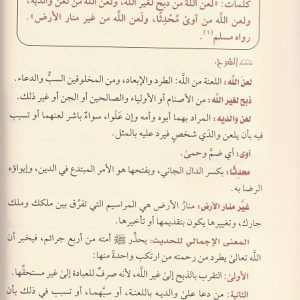 كلمات: «لعن الله من ذبح لغير الله، ولعن الله من لعن والديه،
ولعن الله من آوى مُحْدِثًا، ولعن الله من غير منار الأرض».
رواه مسلم(١).
الشرح:
لعنَ الله: اللعنة من الله: الطرد والإبعاد، ومن المخلوقين السبُّ والدعاء.
ذبح لغير الله: من الأصنام أو الأولياء والصالحين أو الجن أو غير ذلك.
لعن والديه: المراد بهما أبوه وأمه وإن عَلَوا، سواءٌ باشر لعنهما أو تسبب
فيه بأن يلعن والدَي شخصٍ فيرد عليه بالمثل.
آوى: أي ضمَّ وحمىٰ.
محدثًا: بكسر الدال الجاني، وبفتحها هو الأمر المبتدع في الدين، وإيواؤه
الرضا به.
غيّر منار الأرض: منارُ الأرض هي المراسيم التي تفرِّق بين ملكك وملك
جارك، وتغييرها يكون بتقديمها أو تأخيرها.
المعنى الإجمالي للحديث: يحذّر ﷺ أمته من أربع جرائم، فيخبر أن
الله تعالى يطرد من رحمته من ارتكب واحدةً منها:
الأولى: التقرب بالذبح إلى غير الله، لأنه صرفٌ للعبادة إلى غير مستحقِّها.
الثانية: من دعا على والديه باللعنة، أو سبَّهما، أو تسبب في ذلك بأن